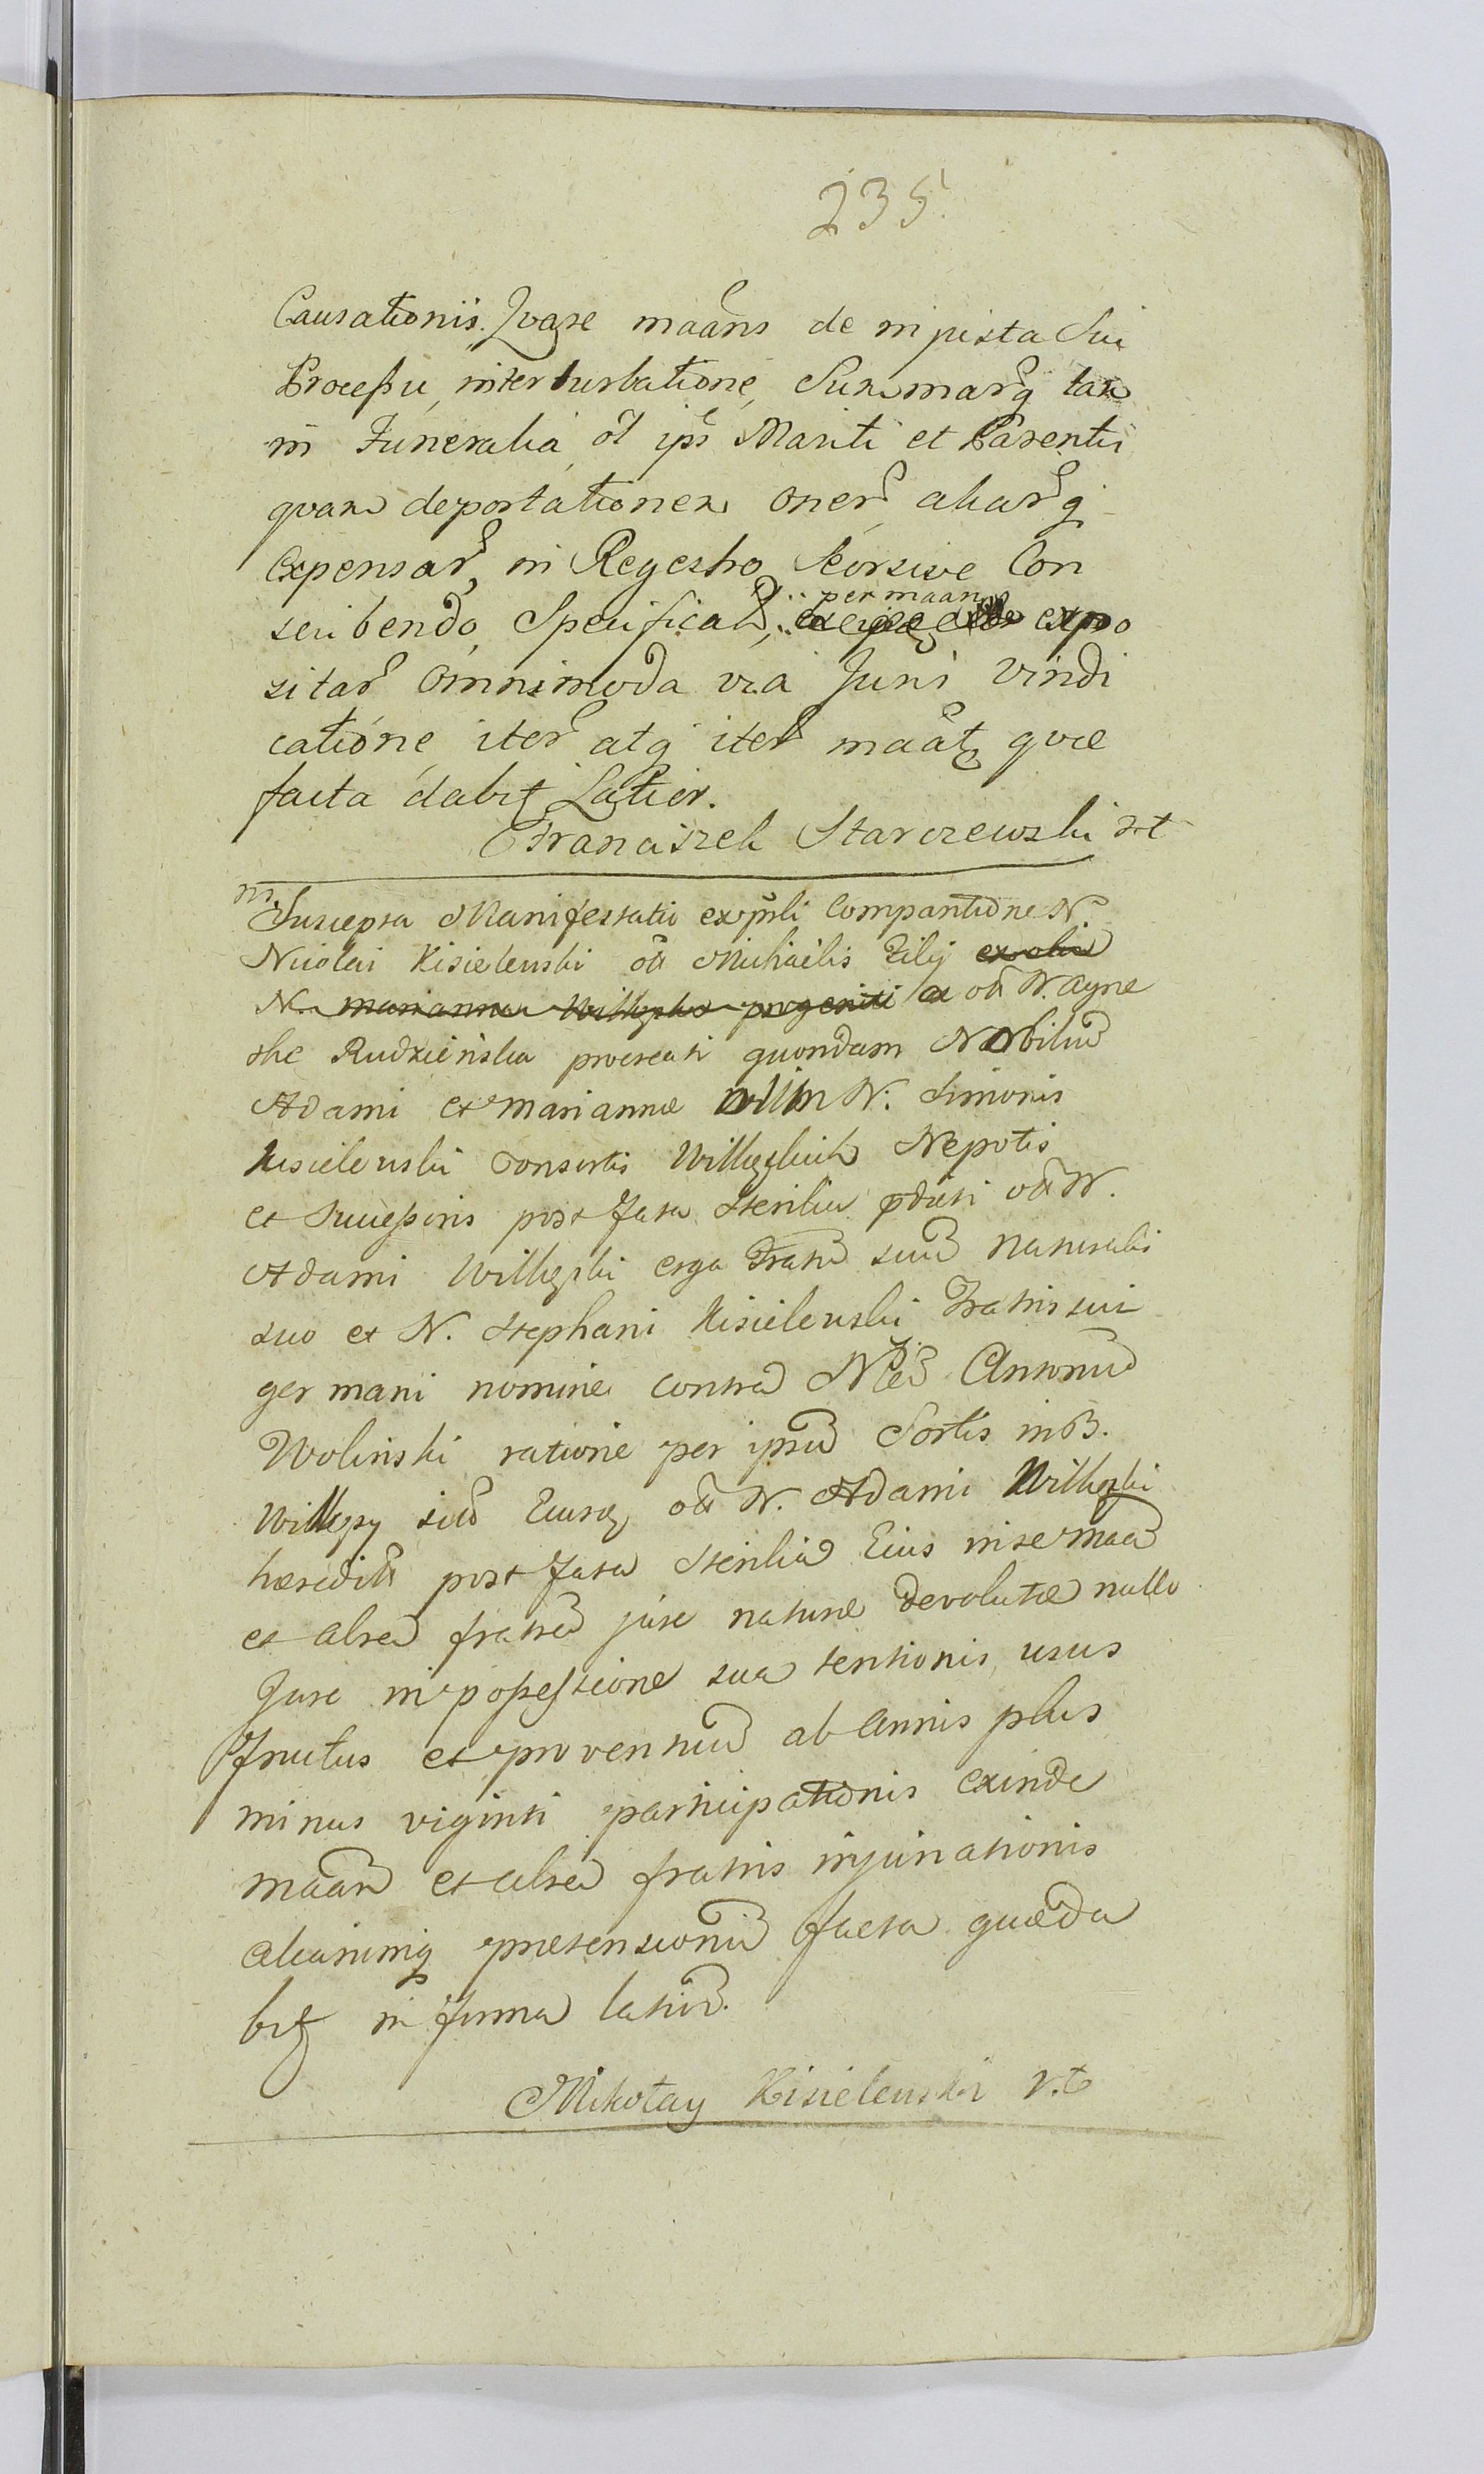 235.
Causationis. Qvare maans de injusta Sui
Processu, interturbatione, Summarq tam
in Funeralia, ol ips Mariti et Parentis
qvam deportationem oner aliarq
Expensar, in Regestro Seorsive Con
scribendo, Specificat, per maan expo
sitar omnimoda via Juris vindi
catione iter atq iter maat qvae
facta dabit Latior.
Franciszek Starczewski mt
m.
Suscepta Manifestatio ex psnli Comparitione N.
Nicolai Kisielenski olt Michaelis Filij ex olim
N. Marianna Willugska progeniti a olt N. Agne
the Rudzieńska procreati quondam N Nobilium
Adami et Mariannae olim N. Simonis
Kisielenski Consortis Nepotis
et Successoris post fata Sterilia pdicti olt N.
Adami erga Fratrem suum Naturalis
suo et N. Stephani Kisielenski Fratris sui
germani nomine contra Antonium
Wolinski ratione per ipsum Sortis in B.
sitae Eiusq olt N. Adami
haeredit post fata Sterilia Eius in se maan
et alrem fratrem jure naturae devolutae nullo
Jure in possessione sua tentionis, usus
fructus et proventuum ab Annis plus
minus viginti participationis exinde
maan et alrem fratris injuriationis
aliarumq praetensionum facta quae da
bit in forma latiori.
Mikołay Kisielenski mt